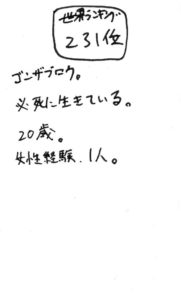 世界ランキング
231位
ゴンザブロウ。
必死に生きている。
20歳。
女性経験.1人。